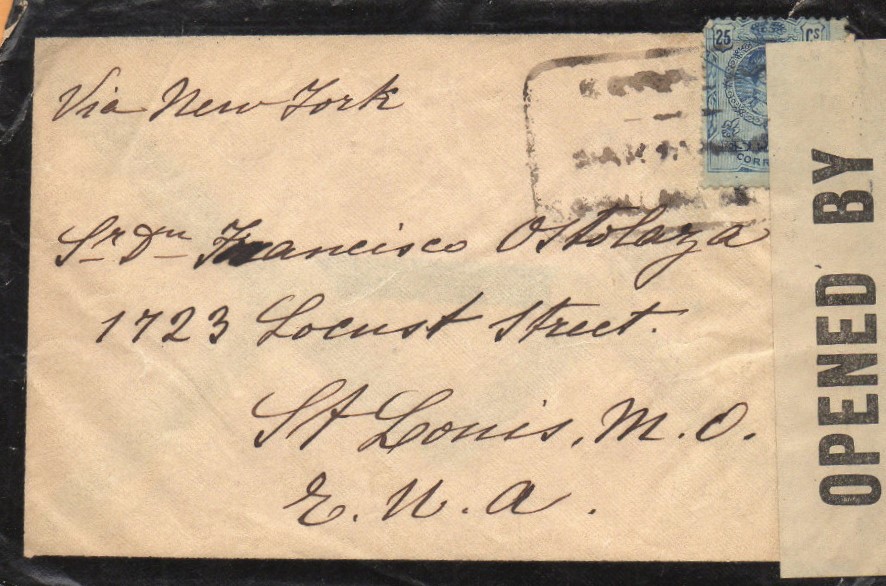 Via New York
25 Cs
CORR
Sr Dn Francisco Ostolaza
1723 Locust Street.
St Louis, M. O.
E. U. A.
OPENED BY